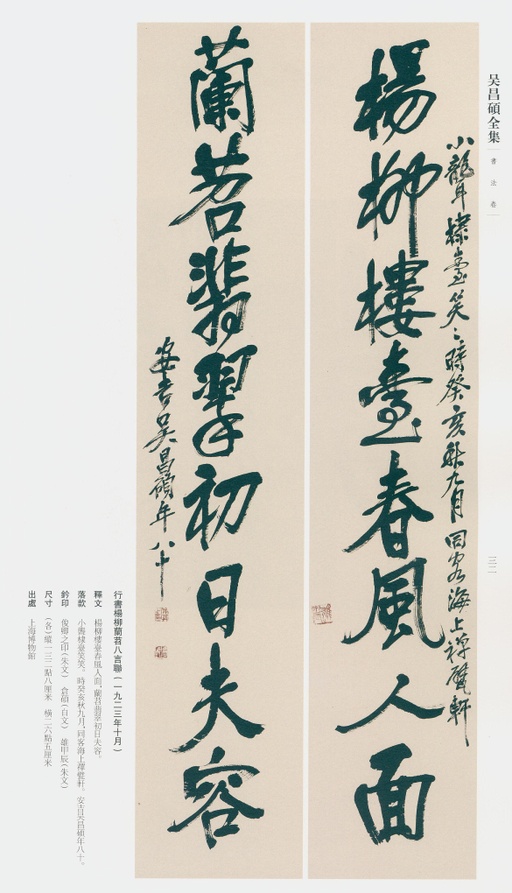 吴昌碩全集
書法卷
小聾耳棣臺笑笑時癸亥秋九月同客海上禪甓軒
楊柳樓臺春風人面
三二
蘭苕翡翠初日夫容
安吉吴昌碩年八十
行書楊柳蘭苕八言聯（一九二三年十月）
釋文　楊柳樓臺春風人面，蘭苕翡翠初日夫容。
落款　小聾棣臺笑笑。時癸亥秋九月，同客海上禪甓軒。安吉吴昌碩年八十。
鈐印　俊卿之印（朱文）　倉碩（白文）　雄甲辰（朱文）
尺寸　（各）縱一三二點八厘米　橫二六點五厘米
出處　上海博物館